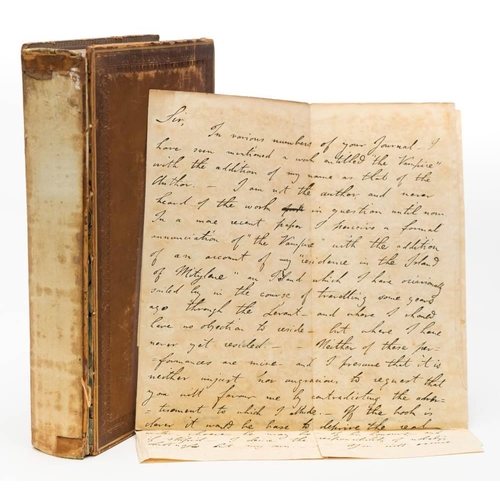 Sir,
In various numbers of your Journal I
have seen mentioned a work entitled "the Vampire"
with the addition of my name as that of the
Author. — I am not the author and never
heard of the work in question until now
In a more recent paper I perceive a formal
annunciation of "the Vampire" with the addition
of an account of my "residence in the Island
of Mitylane" an Island which I have occasionally
sailed by in the course of travelling some years
ago through the Levant — and where I should
have no objection to reside — but where I have
never yet resided — — Neither of these per-
-formances are mine — and I presume that it is
neither unjust nor ungracious to request that
you will favour me by contradicting the adver-
-tisement to which I allude. — If the book is
clever it would be base to deprive the real